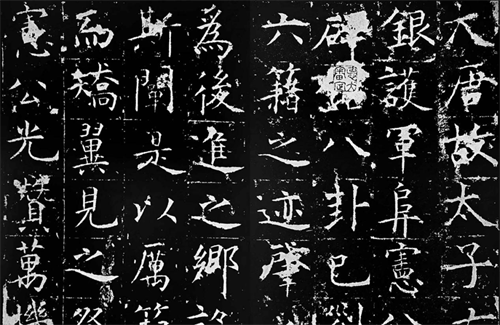 大唐故太子
銀護軍阜憲公
八卦已
六籍之迹肇
為後進之鄉
斯闡是以厲
焉矯翼見之
憲公光贊萬機